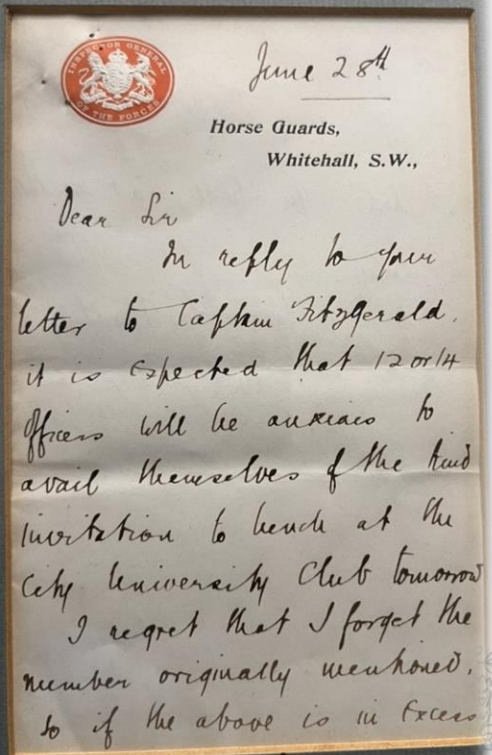 INSPECTOR GENERAL
OF THE FORCES
June 28th
Horse Guards,
Whitehall, S.W.,
Dear Sir
In reply to your
letter to Captain Fitzgerald,
it is expected that 12 or 14
officers will be anxious to
avail themselves of the kind
invitation to lunch at the
City University Club tomorrow
I regret that I forget the
number originally mentioned,
so if the above is in excess